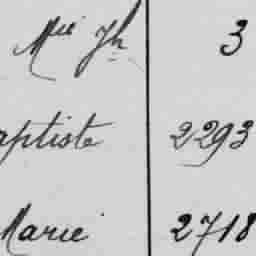 Mie Jh 3
aptiste 2293
Marie 2718